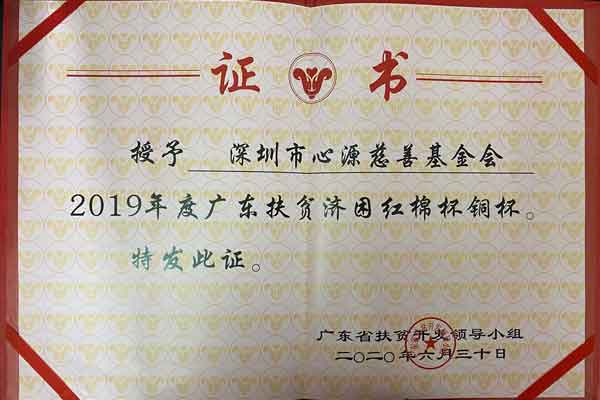 证书
授予 深圳市心源慈善基金会
2019年度广东扶贫济困红棉杯铜杯。
特发此证。
广东省扶贫开发领导小组
二〇二〇年六月三十日